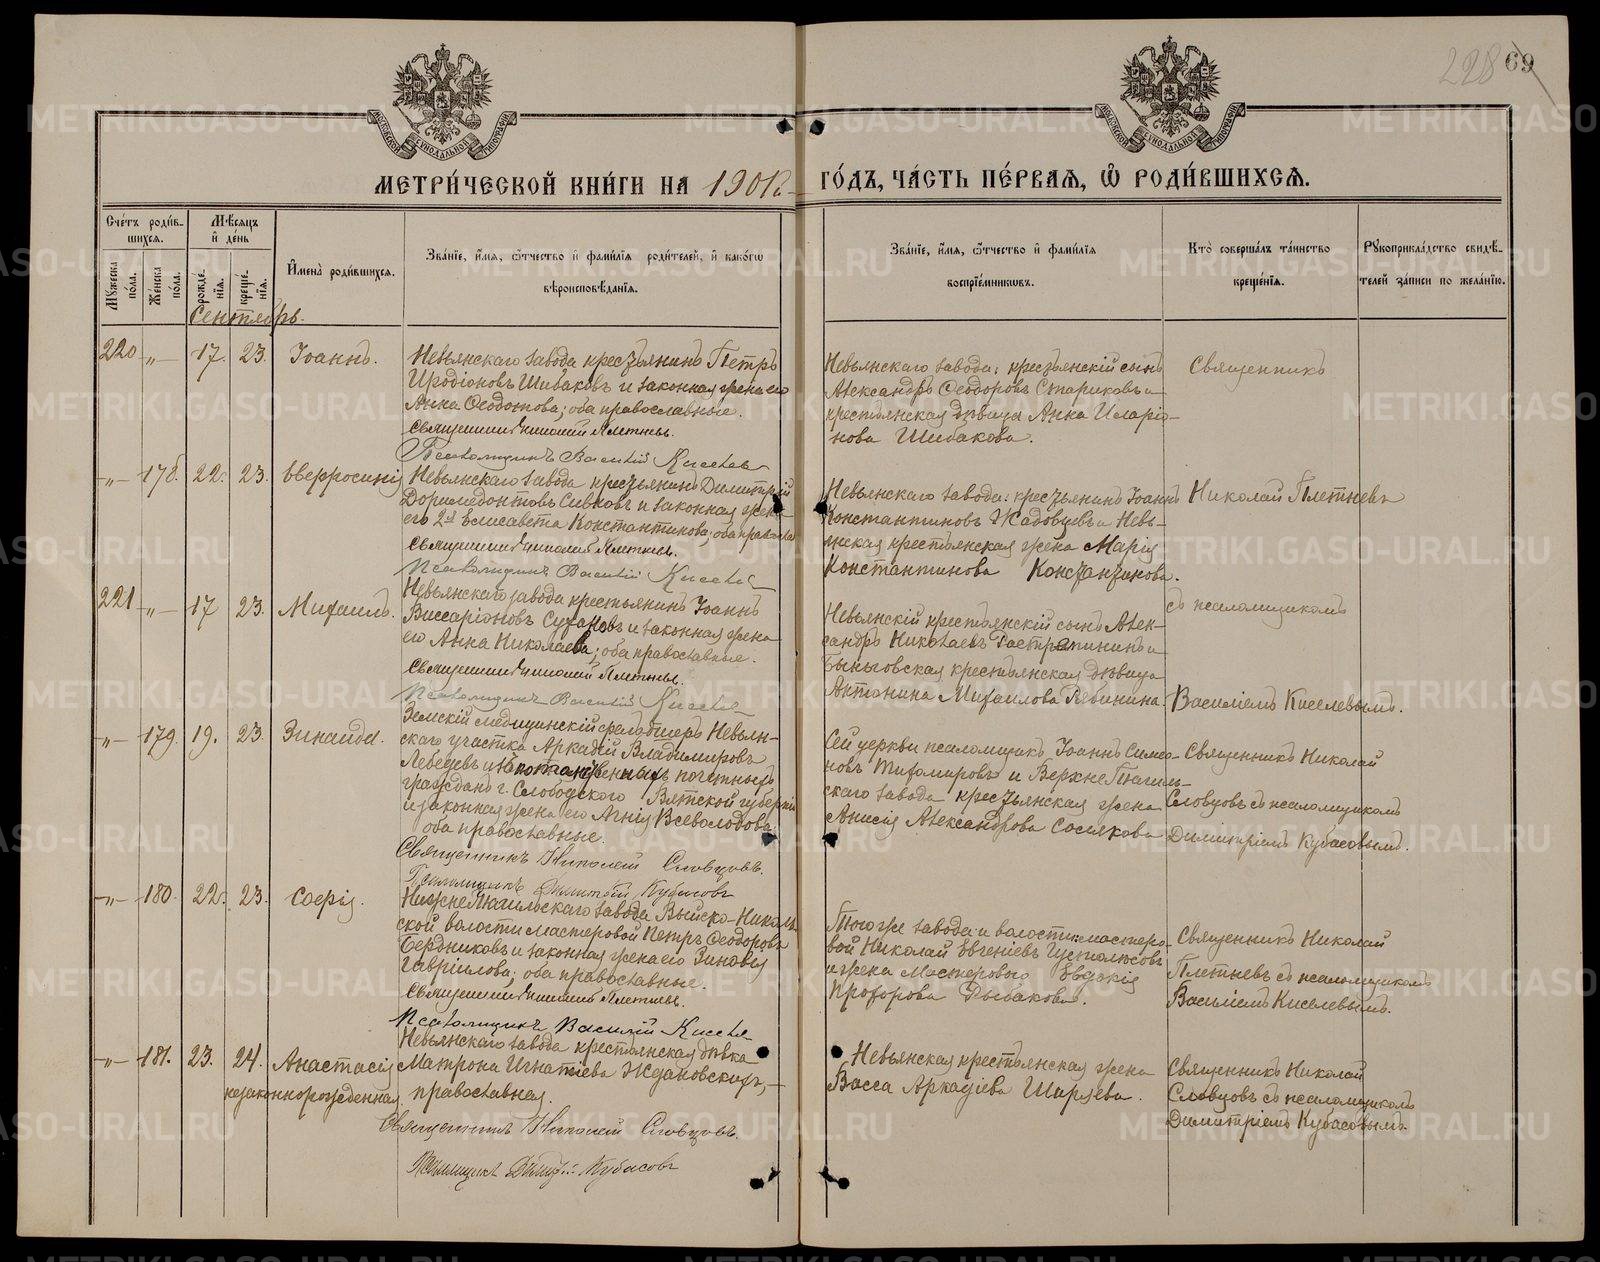 228 69
МЕТРИ́ЧЕСКОЙ КНИ́ГИ НА 1901 ГО́ДЪ, ЧА́СТЬ ПЕ́РВАЯ, Ѿ РОДИ́ВШИХСЯ.
Сче́тъ роди́вшихся.
Мѣ́сяцъ и҆ де́нь
Мꙋ́жеска по́ла.
Же́нска по́ла.
рожде́нїя.
креще́нїя.
И҆мена̀ роди́вшихся.
Зва́нїе, и҆́мя, ѻ҆́тчество и҆ фами́лїя роди́телей, и҆ како́гѡ вѣроисповѣ́данїя.
Зва́нїе, и҆́мя, ѻ҆́тчество и҆ фами́лїя воспрїе́мниковъ.
Кто̀ соверша́лъ та́инство креще́нїя.
Рꙋкоприкла́дство свидѣ́телей за́писи по жела́нїю.
Сентябрь.
220 -"- 17. 23. Іоаннъ.
Невьянскаго завода крестьянинъ Петръ
Иродіоновъ Шибаковъ и законная жена его
Анна Ѳеодотова; оба православные.
Священникъ Николай Плетневъ.
Псаломщикъ Василій Киселевъ
Невьянскаго завода: крестьянскій сынъ
Александръ Ѳеодоровъ Стариковъ и
крестьянская дѣвица Анна Иларіо-
нова Шибакова.
Священникъ
-"- 178. 22. 23. Евфросинія
Невьянскаго завода крестьянинъ Димитрій
Доримедонтовъ Сивковъ и законная жена
его 2ая Елисавета Константинова; оба правосла
Священникъ Николай Плетневъ.
Псаломщикъ Василій Киселевъ
Невьянскаго завода: крестьянинъ Іоаннъ
Константиновъ Жадовцевъ и Невь-
янская крестьянская жена Марія
Константинова Константинова.
Николай Плетневъ
221 -"- 17 23. Михаилъ.
Невьянскаго завода крестьянинъ Іоаннъ
Виссаріоновъ Сухановъ и законная жена
его Анна Николаева; оба православные.
Священникъ Николай Плетневъ.
Псаломщикъ Василій Киселевъ
Невьянскій крестьянскій сынъ Алек-
сандръ Николаевъ и
Быньговская крестьянская дѣвица
Антонина Михаилова Рябинина.
съ псаломщикомъ
Василіемъ Киселевымъ.
-"- 179. 19. 23. Зинаида.
Земскій медицинскій фельдшеръ Невьян-
скаго участка Аркадій Владимировъ
Лебедевъ изъ потомственныхъ почетныхъ
гражданъ г. Слободского Вятской губерніи
и законная жена его Агнія Всеволодова;
оба православные.
Священникъ Николай Словцовъ.
Псаломщикъ Димитрій Кубасовъ
Сей церкви псаломщикъ Іоаннъ Симео-
новъ Тихомировъ и Верхне Тагиль-
скаго завода крестьянская жена
Анисія Александрова Сосякова
Священникъ Николай
Словцовъ съ псаломщикомъ
Димитріемъ Кубасовымъ.
-"- 180. 22. 23. Софія.
Нижне Тагильскаго завода Выйско-Николь
ской волости мастеровой Петръ Ѳеодоровъ
Бердниковъ и законная жена его Зиновія
Гавріилова; оба православные.
Священникъ Николай Плетневъ.
Псаломщикъ Василій Киселевъ
Того же завода и волости: мастеро-
вой Николай Евгеніевъ Густолюсовъ
и жена мастероваго Евдокія
Прохорова Рыбакова.
Священникъ Николай
Плетневъ съ псаломщикомъ
Василіемъ Киселевымъ.
-"- 181. 23. 24. Анастасія
незаконнорожденная
Невьянскаго завода крестьянская дѣвка
Матрона Игнатіева Ждановскихъ,
православная.
Священникъ Николай Словцовъ.
Псаломщикъ Димитрій Кубасовъ
Невьянская крестьянская жена
Васса Аркадіева Ширяева.
Священникъ Николай
Словцовъ съ псаломщикомъ
Димитріемъ Кубасовымъ.
METRIKI.GASO-URAL.RU